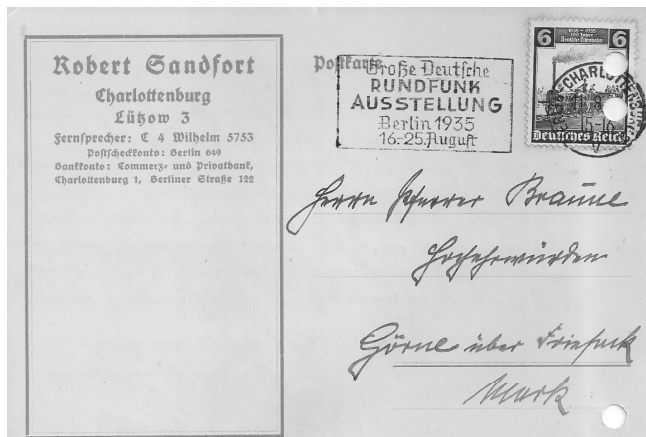 Robert Sandfort
Charlottenburg
Lützow 3
Fernsprecher: C 4 Wilhelm 5753
Postscheckkonto: Berlin 649
Bankkonto: Commerz- und Privatbank,
Charlottenburg 1, Berliner Straße 122
Postkarte
Große Deutsche
RUNDFUNK
AUSSTELLUNG
Berlin 1935
16.-25. August
1835 - 1935
100 Jahre
Deutsche Eisenbahn
6 6
Deutsches Reich
CHARLOTTENBURG
Herrn Pfarrer Braune
Hochehrwürden
Görne über Friesack
Mark